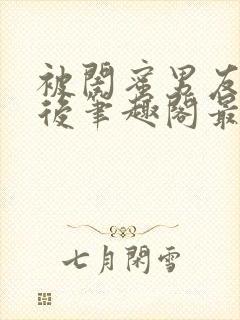 被閨蜜男友
後筆趣閣最
七月閑雪